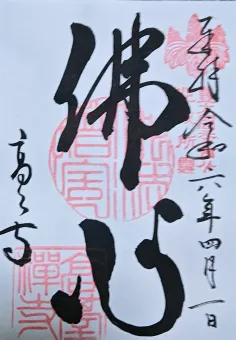 奉拝 令和六年四月一日
佛心
高台寺